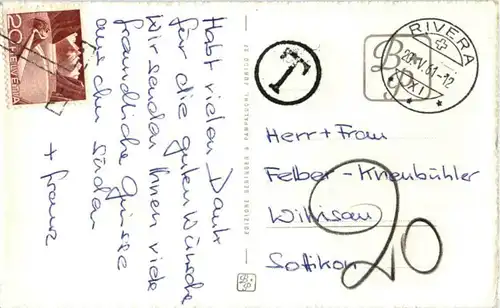 20
HELVETIA
Habt vielen Dank
für die guten Wünsche
Wir senden Ihnen viele
freundliche Grüsse
aus dem Süden
+ Franz
EDIZIONE BENINGER & PAMPALUCHI, ZÜRICH 27
T
RIVERA
XI
Herr + Frau
Felber - Kneubühler
Willisau
Sottikon
20